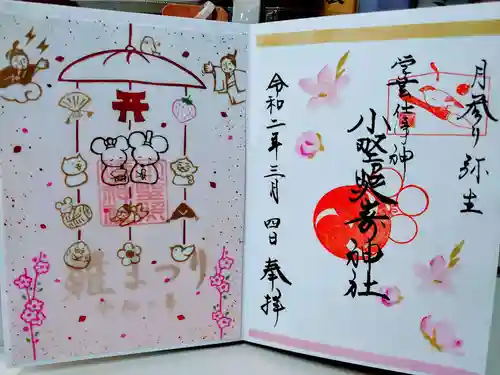 月参り 弥生
小野照崎神社
令和二年三月四日 奉拝
雛まつり